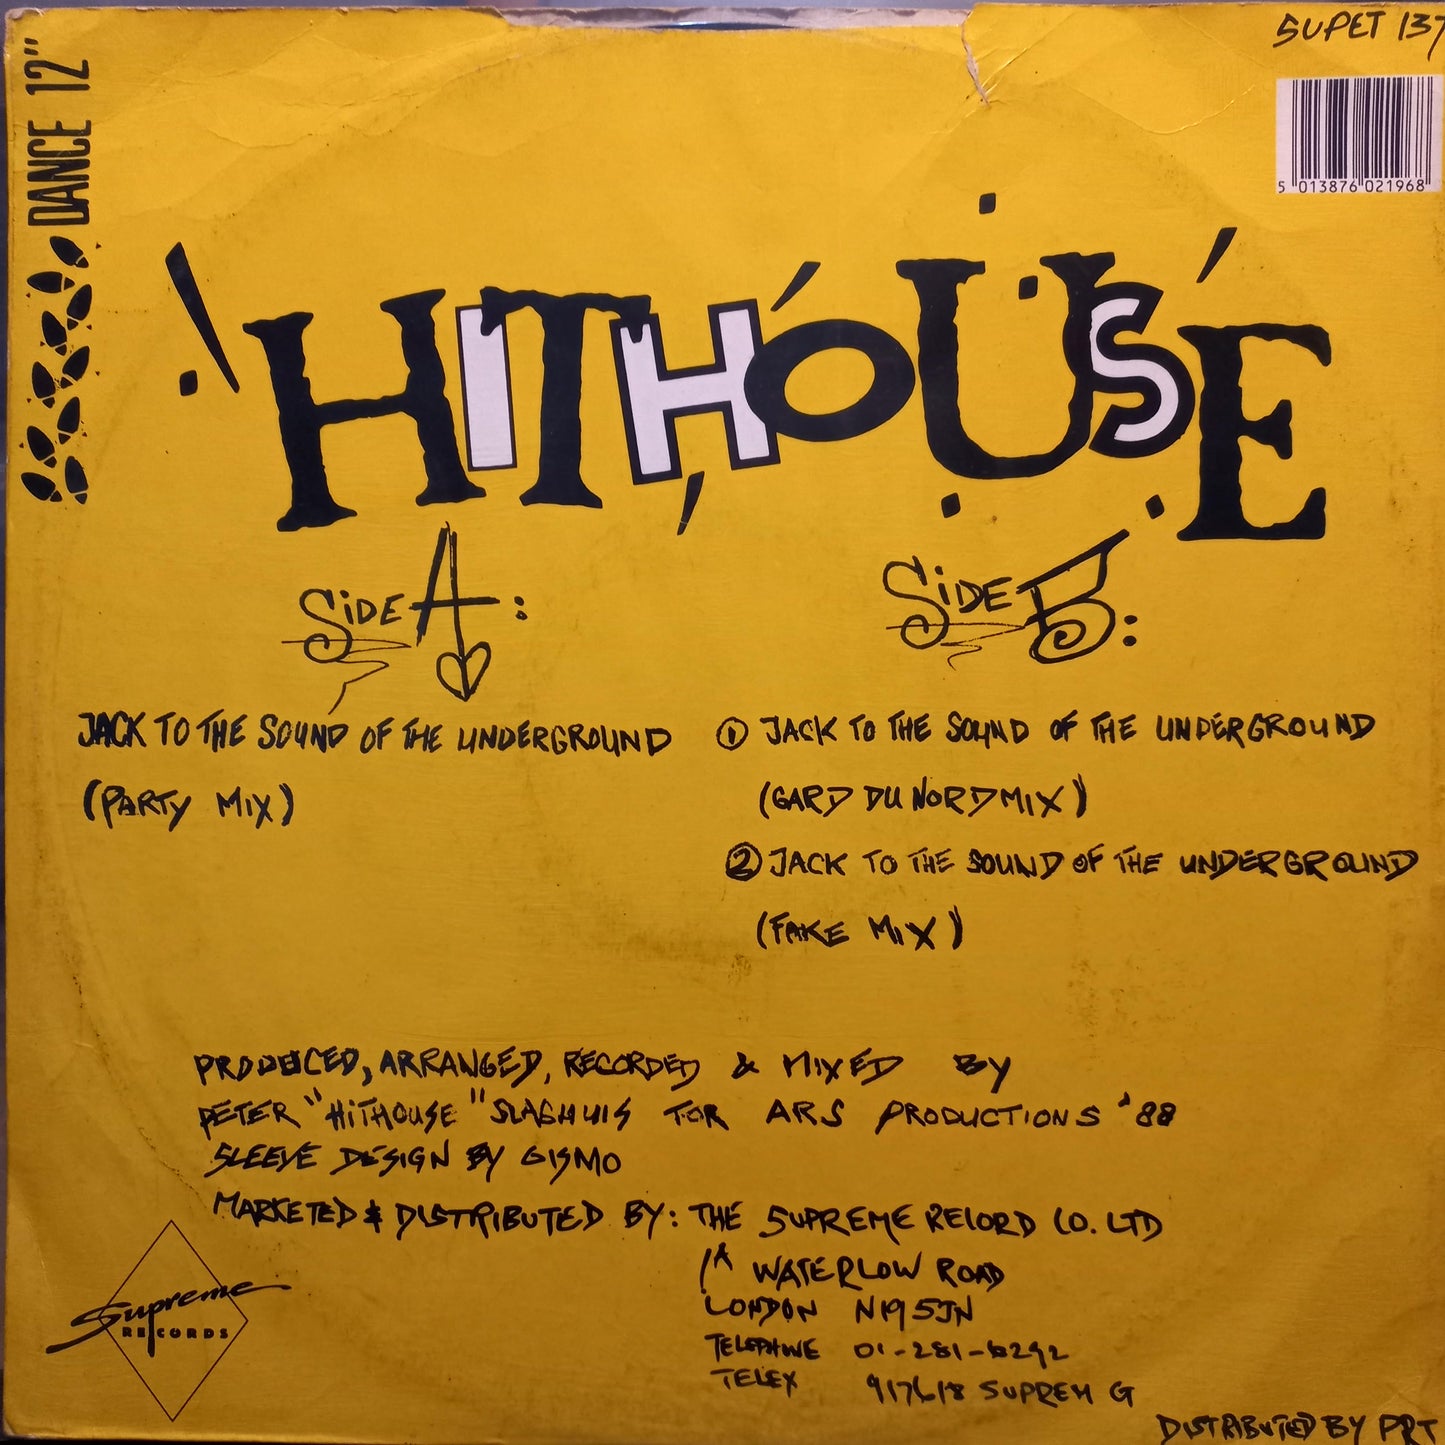 DANCE 12"
SUPET 137
5 013876 021968
HITHOUSE
SIDE A:
JACK TO THE SOUND OF THE UNDERGROUND
(PARTY MIX)
SIDE B:
① JACK TO THE SOUND OF THE UNDERGROUND
(GARD DU NORD MIX)
② JACK TO THE SOUND OF THE UNDERGROUND
(FAKE MIX)
PRODUCED, ARRANGED, RECORDED & MIXED BY
PETER "HITHOUSE" SLAGHUIS FOR ARS PRODUCTIONS '88
SLEEVE DESIGN BY GISMO
MARKETED & DISTRIBUTED BY: THE SUPREME RECORD CO. LTD
1A WATERLOW ROAD
LONDON N19 5JN
TELEPHONE 01-281-6292
TELEX 917618 SUPREM G
Supreme
RECORDS
DISTRIBUTED BY PRT